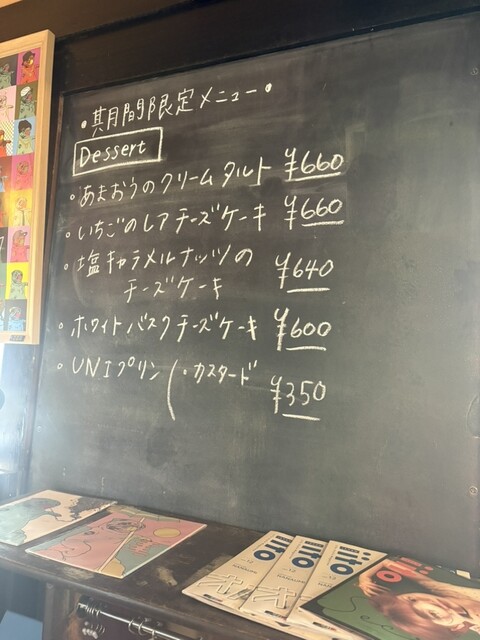 ・期間限定メニュー・
Dessert
・あまおうのクリームタルト ¥660
・いちごのレアチーズケーキ ¥660
・塩キャラメルナッツの
チーズケーキ ¥640
・ホワイトバスクチーズケーキ ¥600
・UNIプリン (・カスタード ¥350
iito
iito
iito